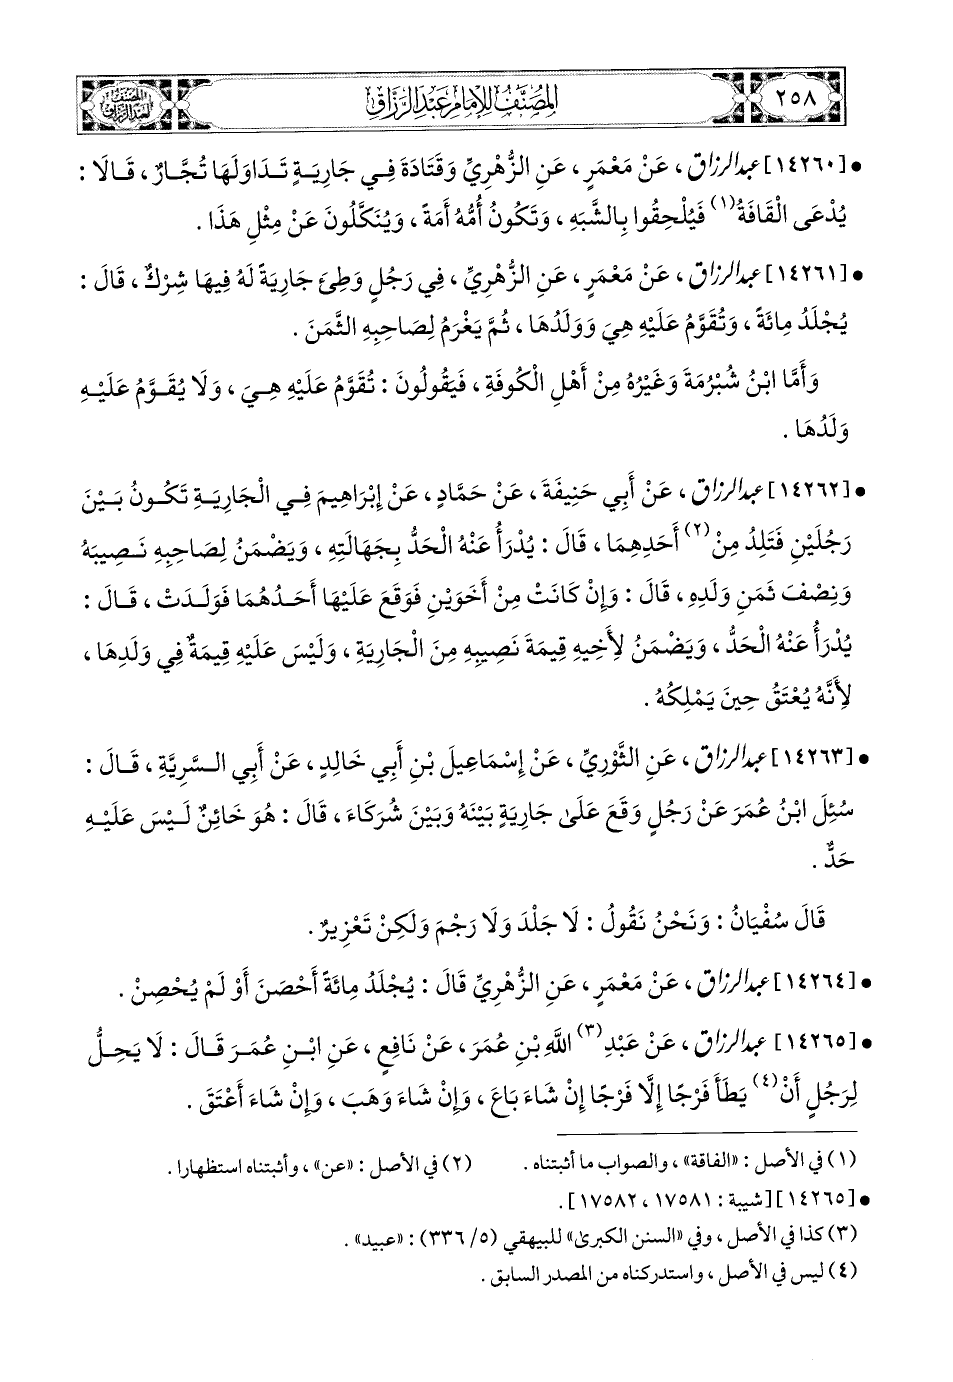 ٢٥٨
المُصَنَّفُ لِلإِمَامِ عَبْدِ الرَّزَّاقِ
المصنف
لعبد الرزاق
• [١٤٢٦٠] عبد الرزاق، عَنْ مَعْمَرٍ، عَنِ الزُّهْرِيِّ وَقَتَادَةَ فِي جَارِيَةٍ تَدَاوَلَهَا تُجَّارٌ، قَالَا :
يُدْعَى الْقَافَةُ(١) فَيُلْحِقُوا بِالشَّبَهِ، وَتَكُونُ أُمُّهُ أَمَةً، وَيُنَكَّلُونَ عَنْ مِثْلِ هَذَا .
• [١٤٢٦١] عبد الرزاق، عَنْ مَعْمَرٍ، عَنِ الزُّهْرِيِّ، فِي رَجُلٍ وَطِئَ جَارِيَةً لَهُ فِيهَا شِرْكٌ، قَالَ :
يُجْلَدُ مِائَةً، وَتُقَوَّمُ عَلَيْهِ هِيَ وَوَلَدُهَا، ثُمَّ يَغْرَمُ لِصَاحِبِهِ الثَّمَنَ .
وَأَمَّا ابْنُ شُبْرُمَةَ وَغَيْرُهُ مِنْ أَهْلِ الْكُوفَةِ، فَيَقُولُونَ : تُقَوَّمُ عَلَيْهِ هِيَ، وَلَا يُقَوَّمُ عَلَيْهِ
وَلَدُهَا .
• [١٤٢٦٢] عبد الرزاق، عَنْ أَبِي حَنِيفَةَ، عَنْ حَمَّادٍ، عَنْ إِبْرَاهِيمَ فِي الْجَارِيَةِ تَكُونُ بَيْنَ
رَجُلَيْنِ فَتَلِدُ مِنْ(٢) أَحَدِهِمَا، قَالَ : يُدْرَأُ عَنْهُ الْحَدُّ بِجَهَالَتِهِ، وَيَضْمَنُ لِصَاحِبِهِ نَصِيبَهُ
وَنِصْفَ ثَمَنِ وَلَدِهِ، قَالَ : وَإِنْ كَانَتْ مِنْ أَخَوَيْنِ فَوَقَعَ عَلَيْهَا أَحَدُهُمَا فَوَلَدَتْ، قَالَ :
يُدْرَأُ عَنْهُ الْحَدُّ، وَيَضْمَنُ لِأَخِيهِ قِيمَةَ نَصِيبِهِ مِنَ الْجَارِيَةِ، وَلَيْسَ عَلَيْهِ قِيمَةٌ فِي وَلَدِهَا،
لِأَنَّهُ يُعْتَقُ حِينَ يَمْلِكُهُ .
• [١٤٢٦٣] عبد الرزاق، عَنِ الثَّوْرِيِّ، عَنْ إِسْمَاعِيلَ بْنِ أَبِي خَالِدٍ، عَنْ أَبِي السَّرِيَّةِ، قَالَ :
سُئِلَ ابْنُ عُمَرَ عَنْ رَجُلٍ وَقَعَ عَلَى جَارِيَةٍ بَيْنَهُ وَبَيْنَ شُرَكَاءَ، قَالَ : هُوَ خَائِنٌ لَيْسَ عَلَيْهِ
حَدٌّ .
قَالَ سُفْيَانُ : وَنَحْنُ نَقُولُ : لَا جَلْدَ وَلَا رَجْمَ وَلَكِنْ تَعْزِيرٌ .
• [١٤٢٦٤] عبد الرزاق، عَنْ مَعْمَرٍ، عَنِ الزُّهْرِيِّ قَالَ : يُجْلَدُ مِائَةً أَحْصَنَ أَوْ لَمْ يُحْصِنْ .
• [١٤٢٦٥] عبد الرزاق، عَنْ عَبْدِ(٣) اللَّهِ بْنِ عُمَرَ، عَنْ نَافِعٍ، عَنِ ابْنِ عُمَرَ قَالَ : لَا يَحِلُّ
لِرَجُلٍ أَنْ(٤) يَطَأَ فَرْجًا إِلَّا فَرْجًا إِنْ شَاءَ بَاعَ، وَإِنْ شَاءَ وَهَبَ، وَإِنْ شَاءَ أَعْتَقَ .
(١) في الأصل : «الفاقة»، والصواب ما أثبتناه . (٢) في الأصل : «عن»، وأثبتناه استظهارا .
• [١٤٢٦٥] [شيبة : ١٧٥٨١، ١٧٥٨٢] .
(٣) كذا في الأصل، وفي «السنن الكبرى» للبيهقي (٥/ ٣٣٦) : «عبيد» .
(٤) ليس في الأصل، واستدركناه من المصدر السابق .